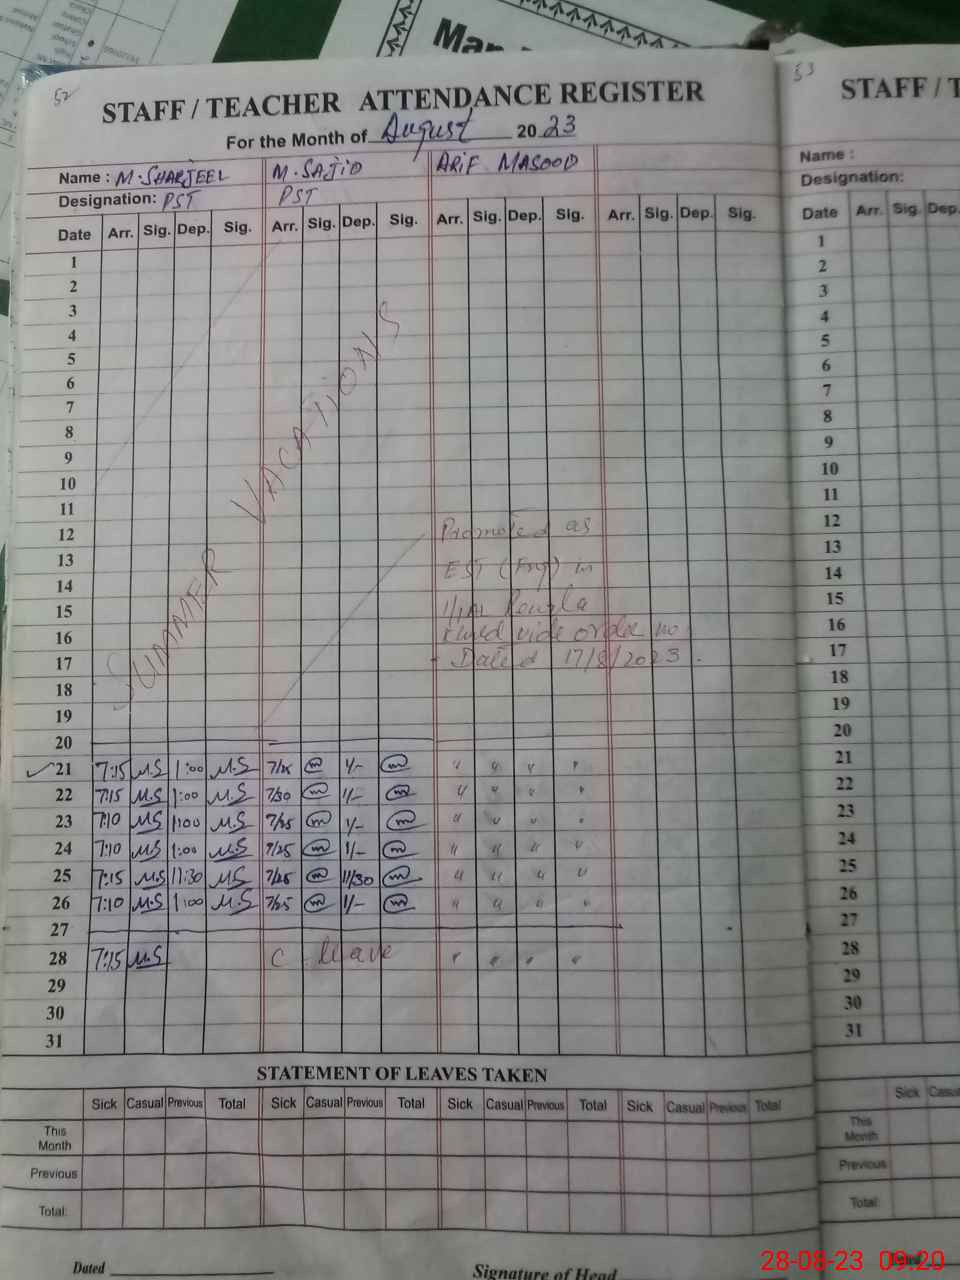 Man
52
STAFF / TEACHER ATTENDANCE REGISTER
For the Month of August 2023
Name : M.SHARJEEL M.SAJID ARIF MASOOD
Designation: PST PST
Date Arr. Sig. Dep. Sig. Arr. Sig. Dep. Sig. Arr. Sig. Dep. Sig. Arr. Sig. Dep. Sig.
1
2
3
4
5
6
7
8
9
10
11
12
13
14
15
16
17
18
19
20
SUMMER VACATIONS
Promoted as
EST (Eng) in
vide order no
Dated 17/8/2023.
21 7:15 M.S 1:00 M.S 7/25 m 1/- m " " " "
22 7:15 M.S 1:00 M.S 7/30 m 1/- m " " " "
23 7:10 M.S 1:00 M.S 7/25 m 1/- m " " " "
24 7:10 M.S 1:00 M.S 7/25 m 1/- m " " " "
25 7:15 M.S 11:30 M.S 7/25 m 11/30 m " " " "
26 7:10 M.S 1:00 M.S 7/25 m 1/- m " " " "
27
28 7:15 M.S C. leave " " " "
29
30
31
STATEMENT OF LEAVES TAKEN
Sick Casual Previous Total Sick Casual Previous Total Sick Casual Previous Total Sick Casual Previous Total
This
Month
Previous
Total:
Dated
Signature of Head
53
STAFF / T
Name :
Designation:
Date Arr. Sig. Dep.
1
2
3
4
5
6
7
8
9
10
11
12
13
14
15
16
17
18
19
20
21
22
23
24
25
26
27
28
29
30
31
Sick Casual
This
Month
Previous
Total:
Dated
28-08-23 09:20